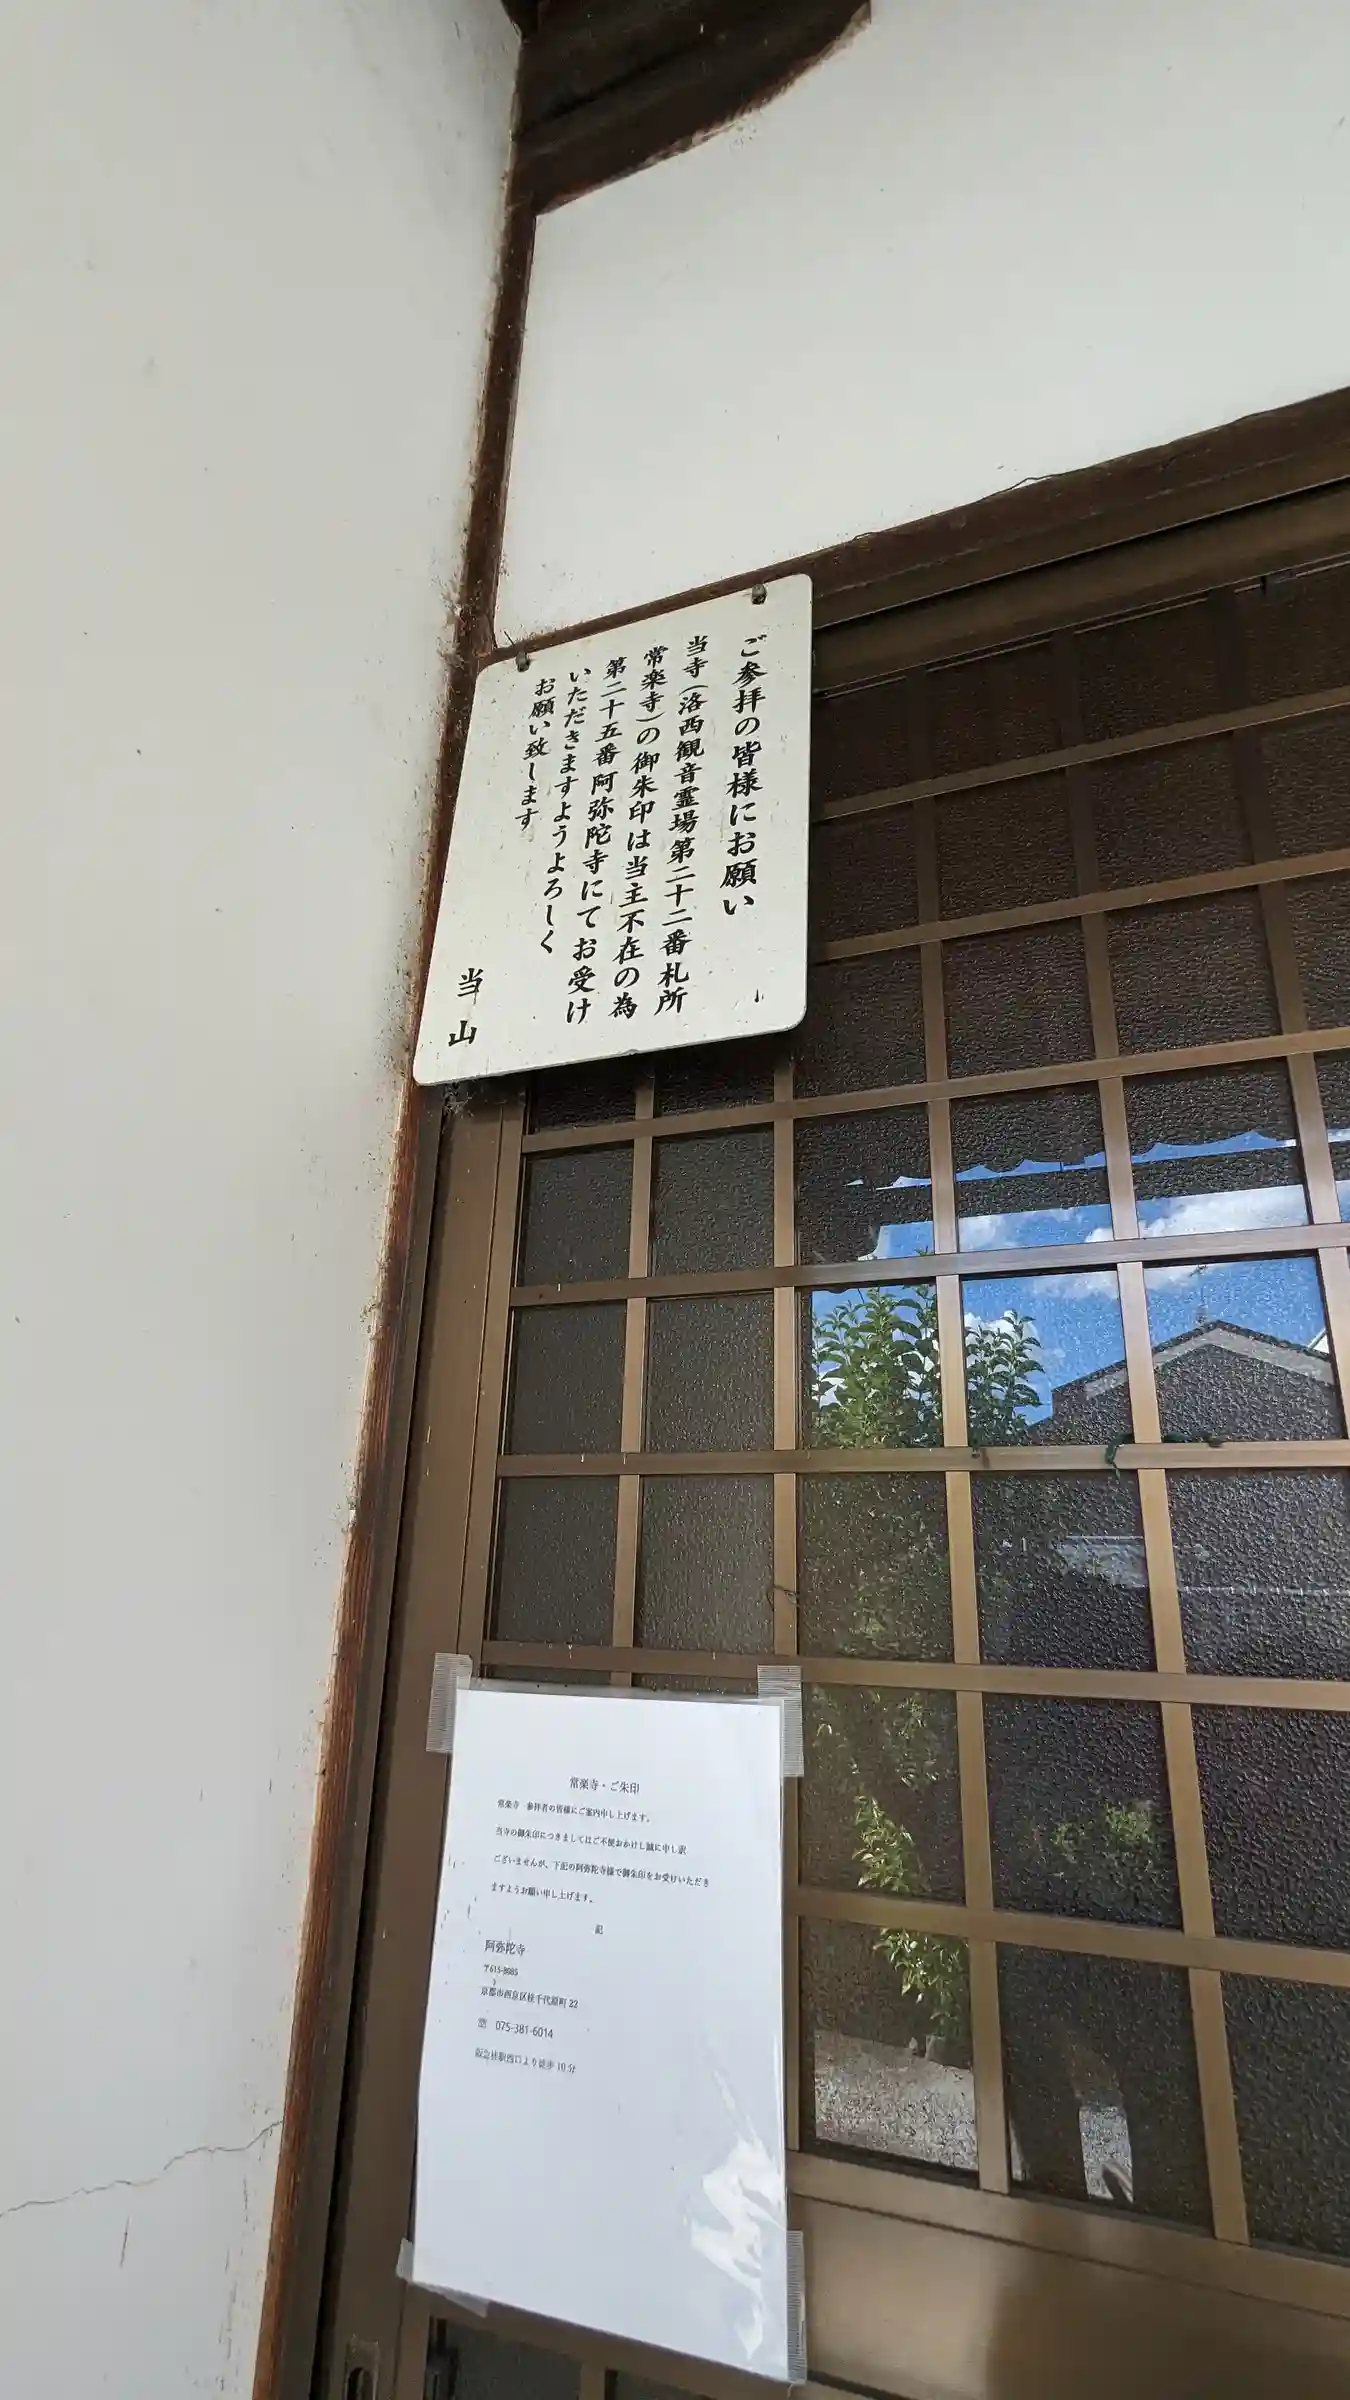 ご参拝の皆様にお願い
当寺(洛西観音霊場第二十二番札所
常楽寺)の御朱印は当主不在の為
第二十五番阿弥陀寺にてお受け
いただきますようよろしく
お願い致します
当山
常楽寺・ご朱印
常楽寺 参拝者の皆様にご案内申し上げます。
当寺の御朱印につきましてはご不便おかけし誠に申し訳
ございませんが、下記の阿弥陀寺様で御朱印をお受けいただき
ますようお願い申し上げます。
記
阿弥陀寺
〒615-8085
京都市西京区桂千代原町 22
☎ 075-381-6014
阪急桂駅西口より徒歩 10 分